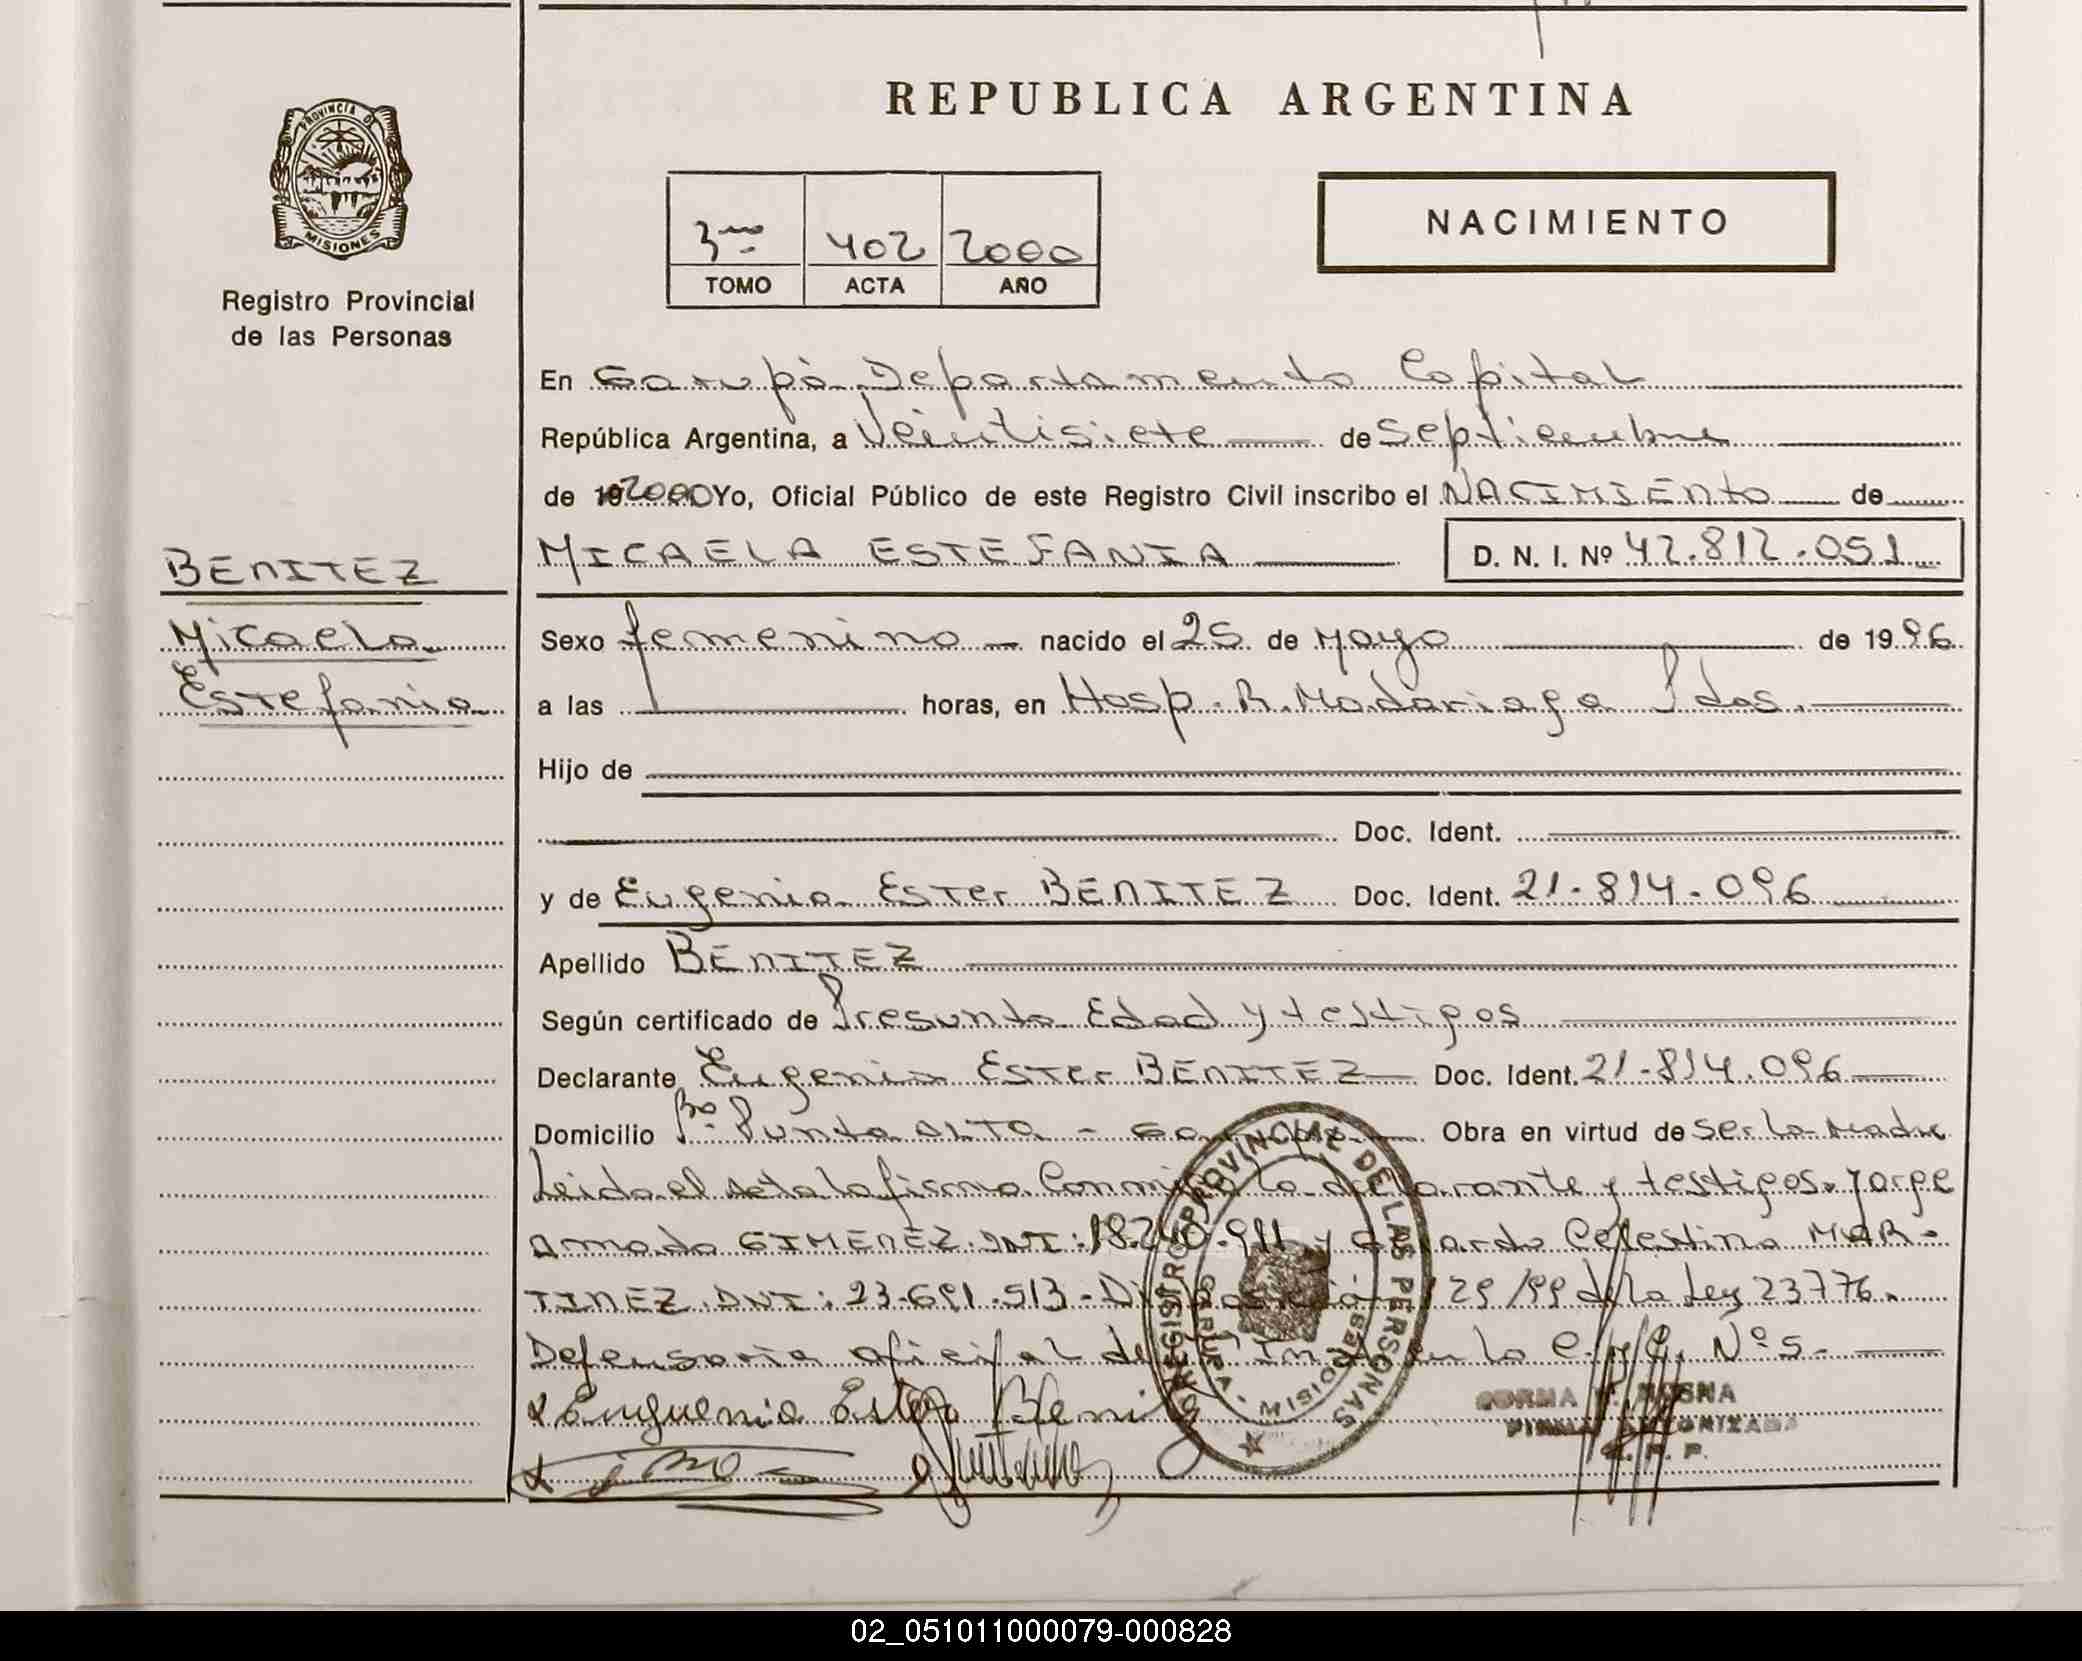 REPUBLICA ARGENTINA
PROVINCIA DE
MISIONES
Registro Provincial
de las Personas
3ro 402 2000
TOMO ACTA AÑO
NACIMIENTO
En Garupá Departamento Capital
República Argentina, a Veintisiete de Septiembre
de 19 2000 Yo, Oficial Público de este Registro Civil inscribo el NACIMIENTO de
BENITEZ
MICAELA ESTEFANIA D. N. I. Nº 42.812.051
Micaela
Estefania
Sexo femenino nacido el 25 de Mayo de 1996
a las horas, en Hosp. R. Madariaga Pdas.
Hijo de
Doc. Ident.
y de Eugenia Ester BENITEZ Doc. Ident. 21.814.096
Apellido BENITEZ
Según certificado de Presunta Edad y testigos
Declarante Eugenia Ester BENITEZ Doc. Ident. 21.814.096
Domicilio Bº Punta ALTA - Garupá. Obra en virtud de ser la Madre
Leida el acta la firma conmigo la declarante y testigos. Jorge
Amado GIMENEZ. DNI: 18.240.911 y Celestino MAR-
TINEZ. DNI: 23.691.513 - Disposición 129/99 de la Ley 23776.
Defensoria oficial de en lo C. y C. Nº 5.
Euguenia Ester Beni
REGISTRO PROVINCIAL DE LAS PERSONAS
GARUPA - MISIONES
FIRMA AUTORIZADA
R. P. P.
02_051011000079-000828